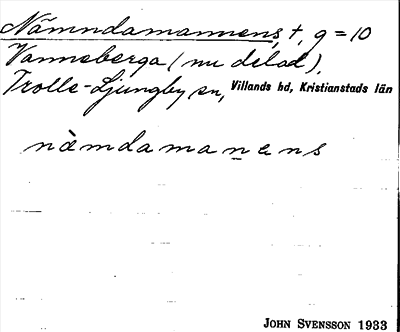 Nämndamannens, †, g = 10
Vanneberga (nu delad),
Trolle-Ljungby sn, Villands hd, Kristianstads län
nàmdamanens
JOHN SVENSSON 1933